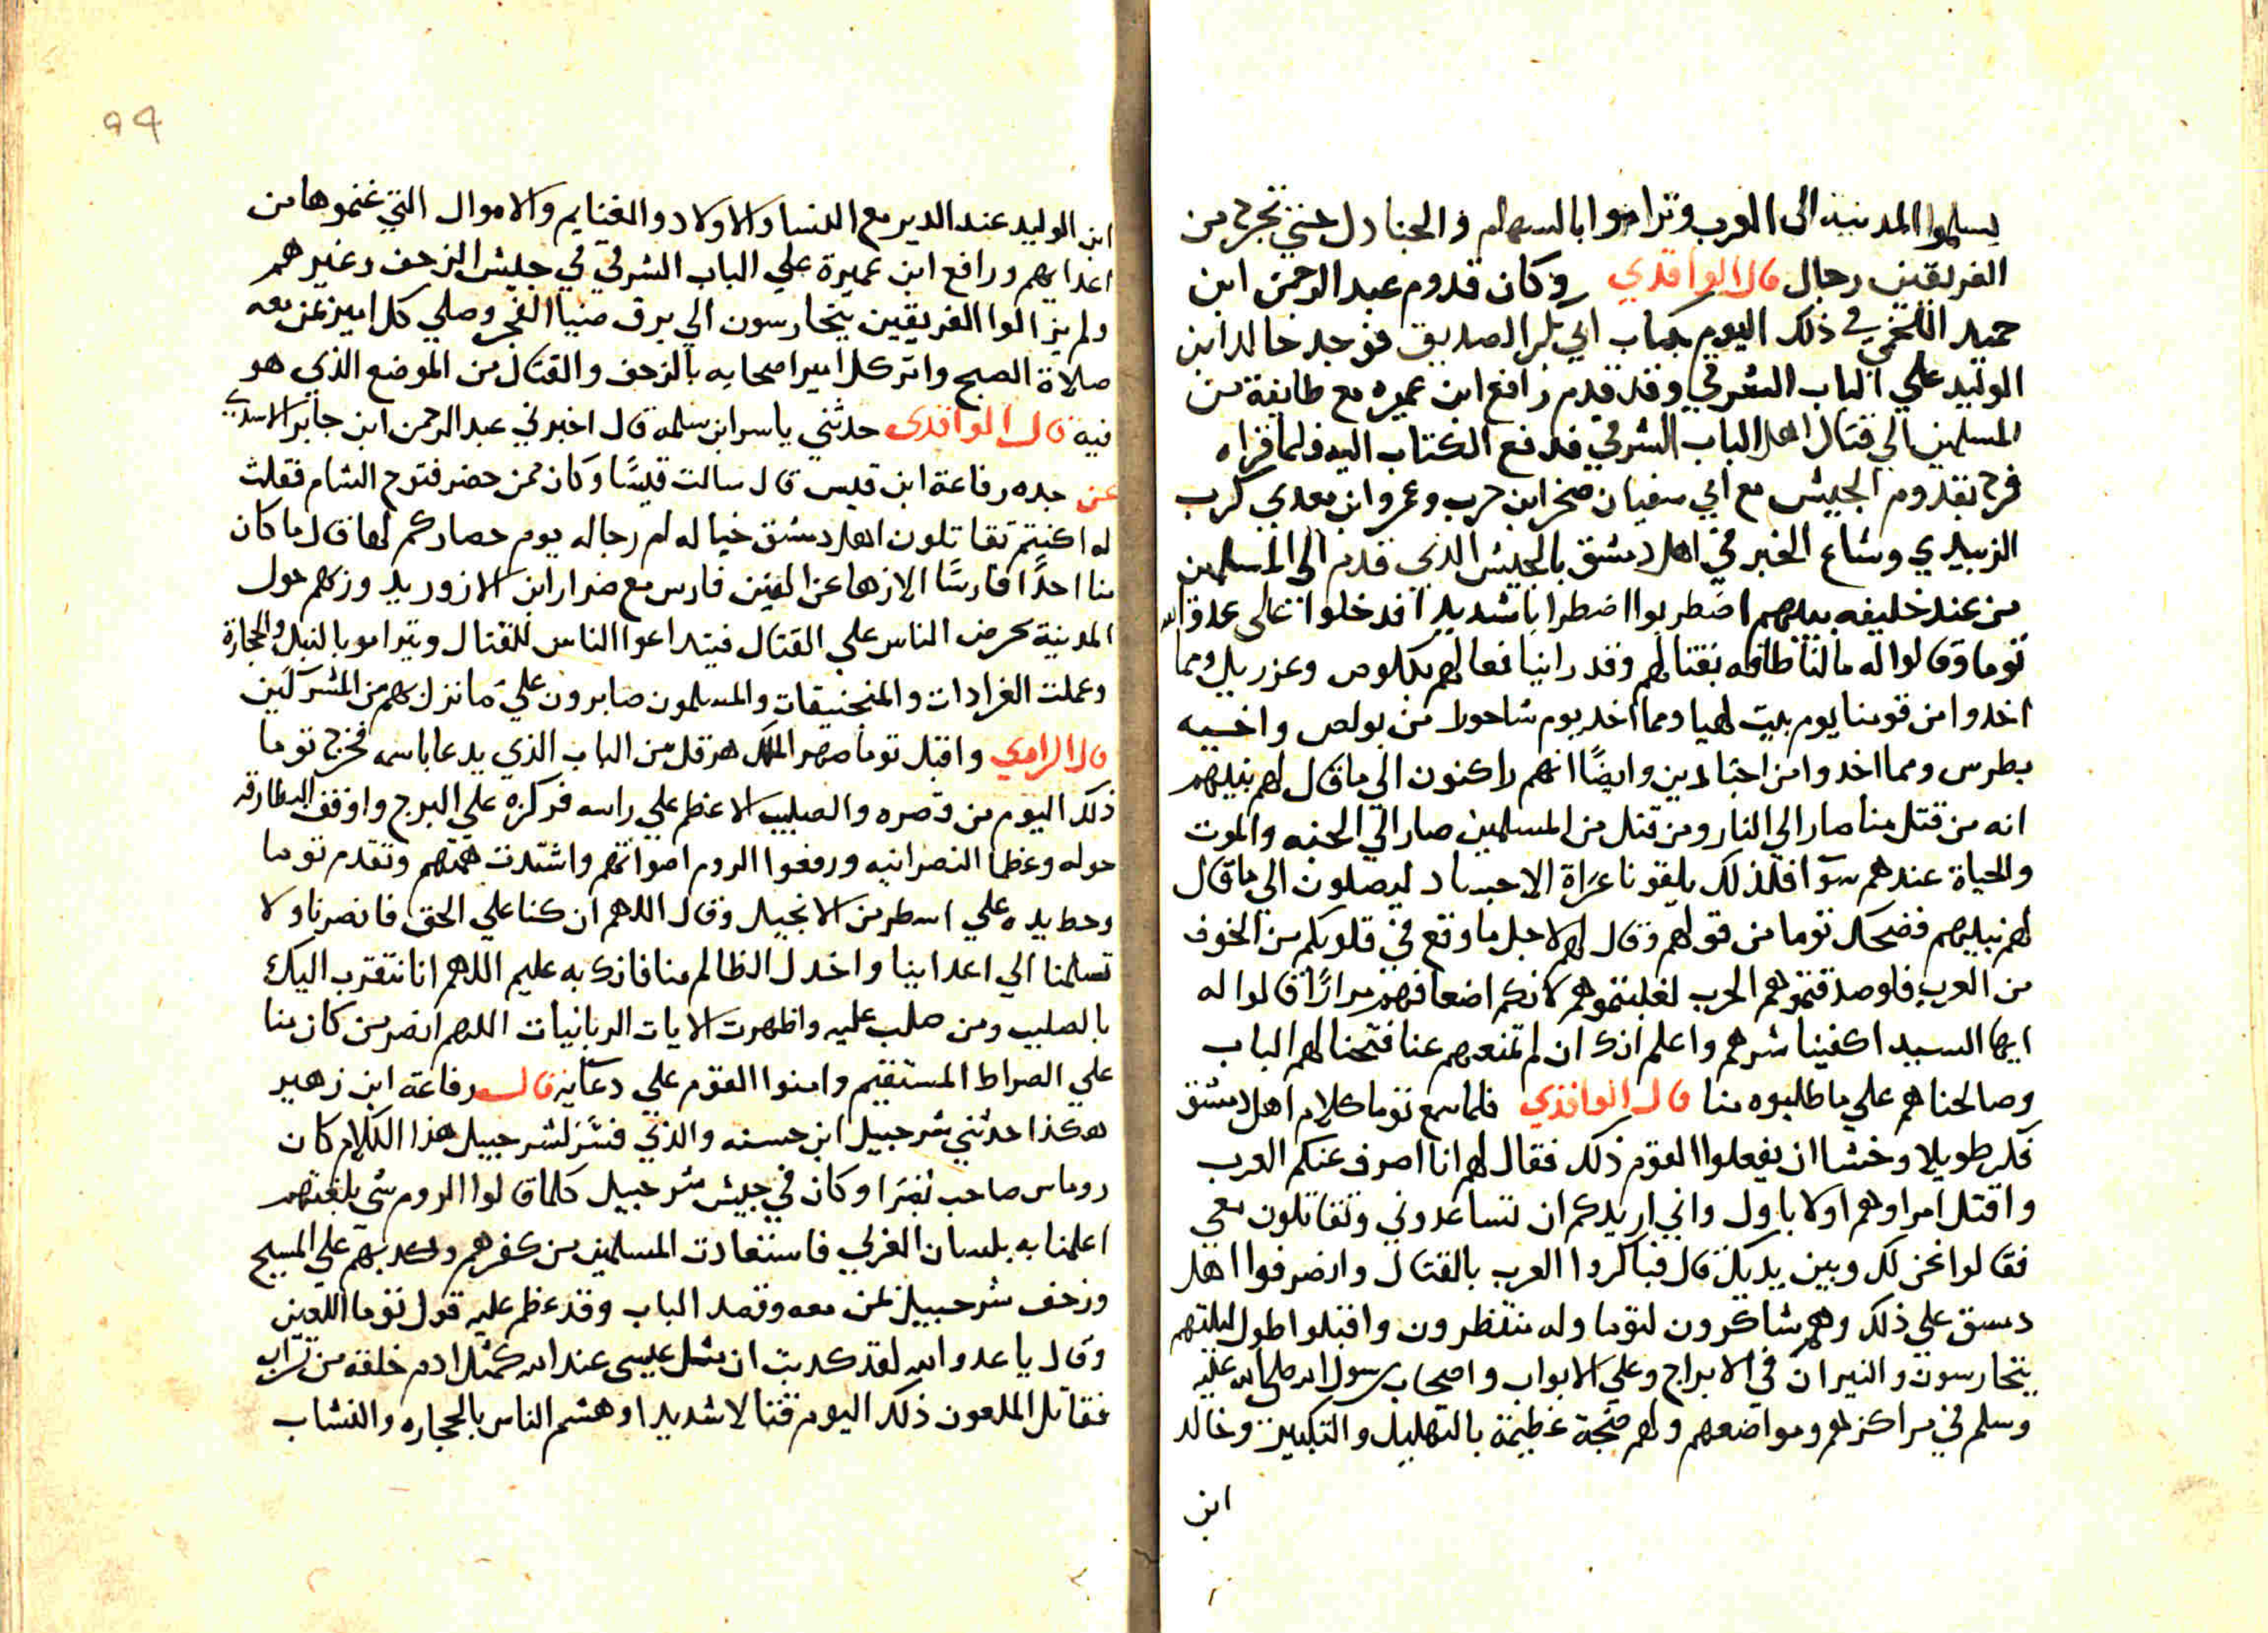 يسلموا المدينه الى العرب وتراموا بالسهام والجنادل حتي تجرح من
الفريقين رجال قال الواقدي وكان قدوم عبد الرحمن ابن
حميد اللخمي في ذلك اليوم بكتاب ابي بكر الصديق فوجد خالد ابن
الوليد علي الباب الشرقي وقد قدم رافع ابن عميره مع طايفة من
المسلمين الي قتال اهل الباب الشرقي فدفع الكتاب اليه فلما قراه
فرح بقدوم الجيش مع ابي سفيان صخر ابن حرب وعمرو ابن معدي كرب
الزبيدي وشاع الخبر في اهل دمشق بالجيش الذي قدم الي المسلمين
من عند خليفه بينهم اضطربوا اضطرابا شديدا فدخلوا على عدو الله
توما وقالوا له مالنا طاقه بقتالهم وقد راينا فعالهم بكلوص وعزربيل ومما
اخدوا من قومنا يوم بيت لهيا ومما اخد يوم شاحورا من بولص واخيه
بطرس ومما اخدوا من اجنادين وايضًا انهم راكنون الي ما قال لهم نبيهم
انه من قتل منا صار الي النار ومن قتل من المسلمين صار الي الجنه والموت
والحياة عندهم سوآ فلذلك يلقونا عراة الاجساد ليصلون الي ما قال
لهم نبيهم فضحك توما من قولهم وقال لهم لاجل ما وقع في قلوبكم من الخوف
من العرب فلو صدقتموهم الحرب لغلبتموهم لانكم اضعافهم مرارًا قالوا له
ايها السيد اكفينا شرهم واعلم انك ان لم تمنعهم عنا فتحنا لهم الباب
وصالحناهم علي ما طلبوه منا قال الواقدي فلما سمع توما كلام اهل دمشق
فكر طويلا وخشا ان يفعلوا القوم ذلك فقال لهم انا اصرف عنكم العرب
واقتل امراوهم اولا باول واني اريدكم ان تساعدوني وتقاتلون معي
فقالوا نحن لك وبين يديك قال فباكروا العرب بالقتال وانصرفوا اهل
دمسق علي ذلك وهم شاكرون لتوما وله منتظرون واقبلوا طول ليلتهم
يتحارسون والنيران في الابراج وعلي الابواب واصحاب رسول الله صلى الله عليه
وسلم في مراكزهم ومواضعهم ولهم ضجة عظيمة بالتهليل والتكبير وخالد
ابن
94
ابن الوليد عند الدير مع النسا والاولاد والغنايم والاموال التي غنموها من
اعدايهم ورافع ابن عميرة علي الباب الشرقي في جيش الزحف وغيرهم
ولم يزالوا الفريقين يتحارسون الي برق ضيا الفجر وصلي كل امير بمن معه
صلاة الصبح وامر كل امير اصحابه بالزحف والقتال من الموضع الذي هو
فيه قال الواقدى حدثني ياسر ابن سلمه قال اخبرني عبد الرحمن ابن جابر الاسدي
عن جده رفاعة ابن قيس قال سالت قيسًا وكان ممن حضر فتوح الشام فقلت
له اكنتم تقاتلون اهل دمشق خياله ام رجاله يوم حصاركم لها قال ما كان
منا احدًا فارسًا الا زها عن الفين فارس مع ضرار ابن الازور يد وزكهم حول
المدينة يحرض الناس علي القتال فيتداعوا الناس للقتال ويترامو بالنبل والحجارة
وعملت العرادات والمنجنيقات والمسلمون صابرون علي ما نزل بهم من المشركين
قال الراوي واقبل توما صهر الملك هرقل من الباب الذي يدعا باسمه فخرج توما
ذلك اليوم من قصره والصليب الاعظم علي راسه فركزه علي البرج واوقف البطارقه
حوله وعظما النصرانيه ورفعوا الروم اصواتهم واشتدت همتهم وتقدم توما
وحط يده علي اسطر من الانجيل وقال اللهم ان كنا علي الحق فانصرنا ولا
تسلمنا الي اعداينا واخدل الظالم منا فانك به عليم اللهم انا نتقرب اليك
بالصليب ومن صلب عليه واظهرت الايات الربانيات اللهم انصر من كان منا
علي الصراط المستقيم وامنوا القوم علي دعايه قال رفاعة ابن زهير
هكذا حدثني شرحبيل ابن حسنه والذي فسر لشرحبيل هذا الكلام كان
روماس صاحب بصرا وكان في جيش شرحبيل كلما قالوا الروم شي بلغتهم
اعلمنا به بلسان العربي فاستعادت المسلمين من كفرهم وكدبهم علي المسيح
وزحف شرحبيل بمن معه وقصد الباب وقد عظم عليه قول توما اللعين
وقال يا عدو الله لقد كدبت ان مثل عيسى عند الله كمثل ادم خلقه من تراب
فقاتل الملعون ذلك اليوم قتالا شديدا وهشم الناس بالحجاره والنشاب